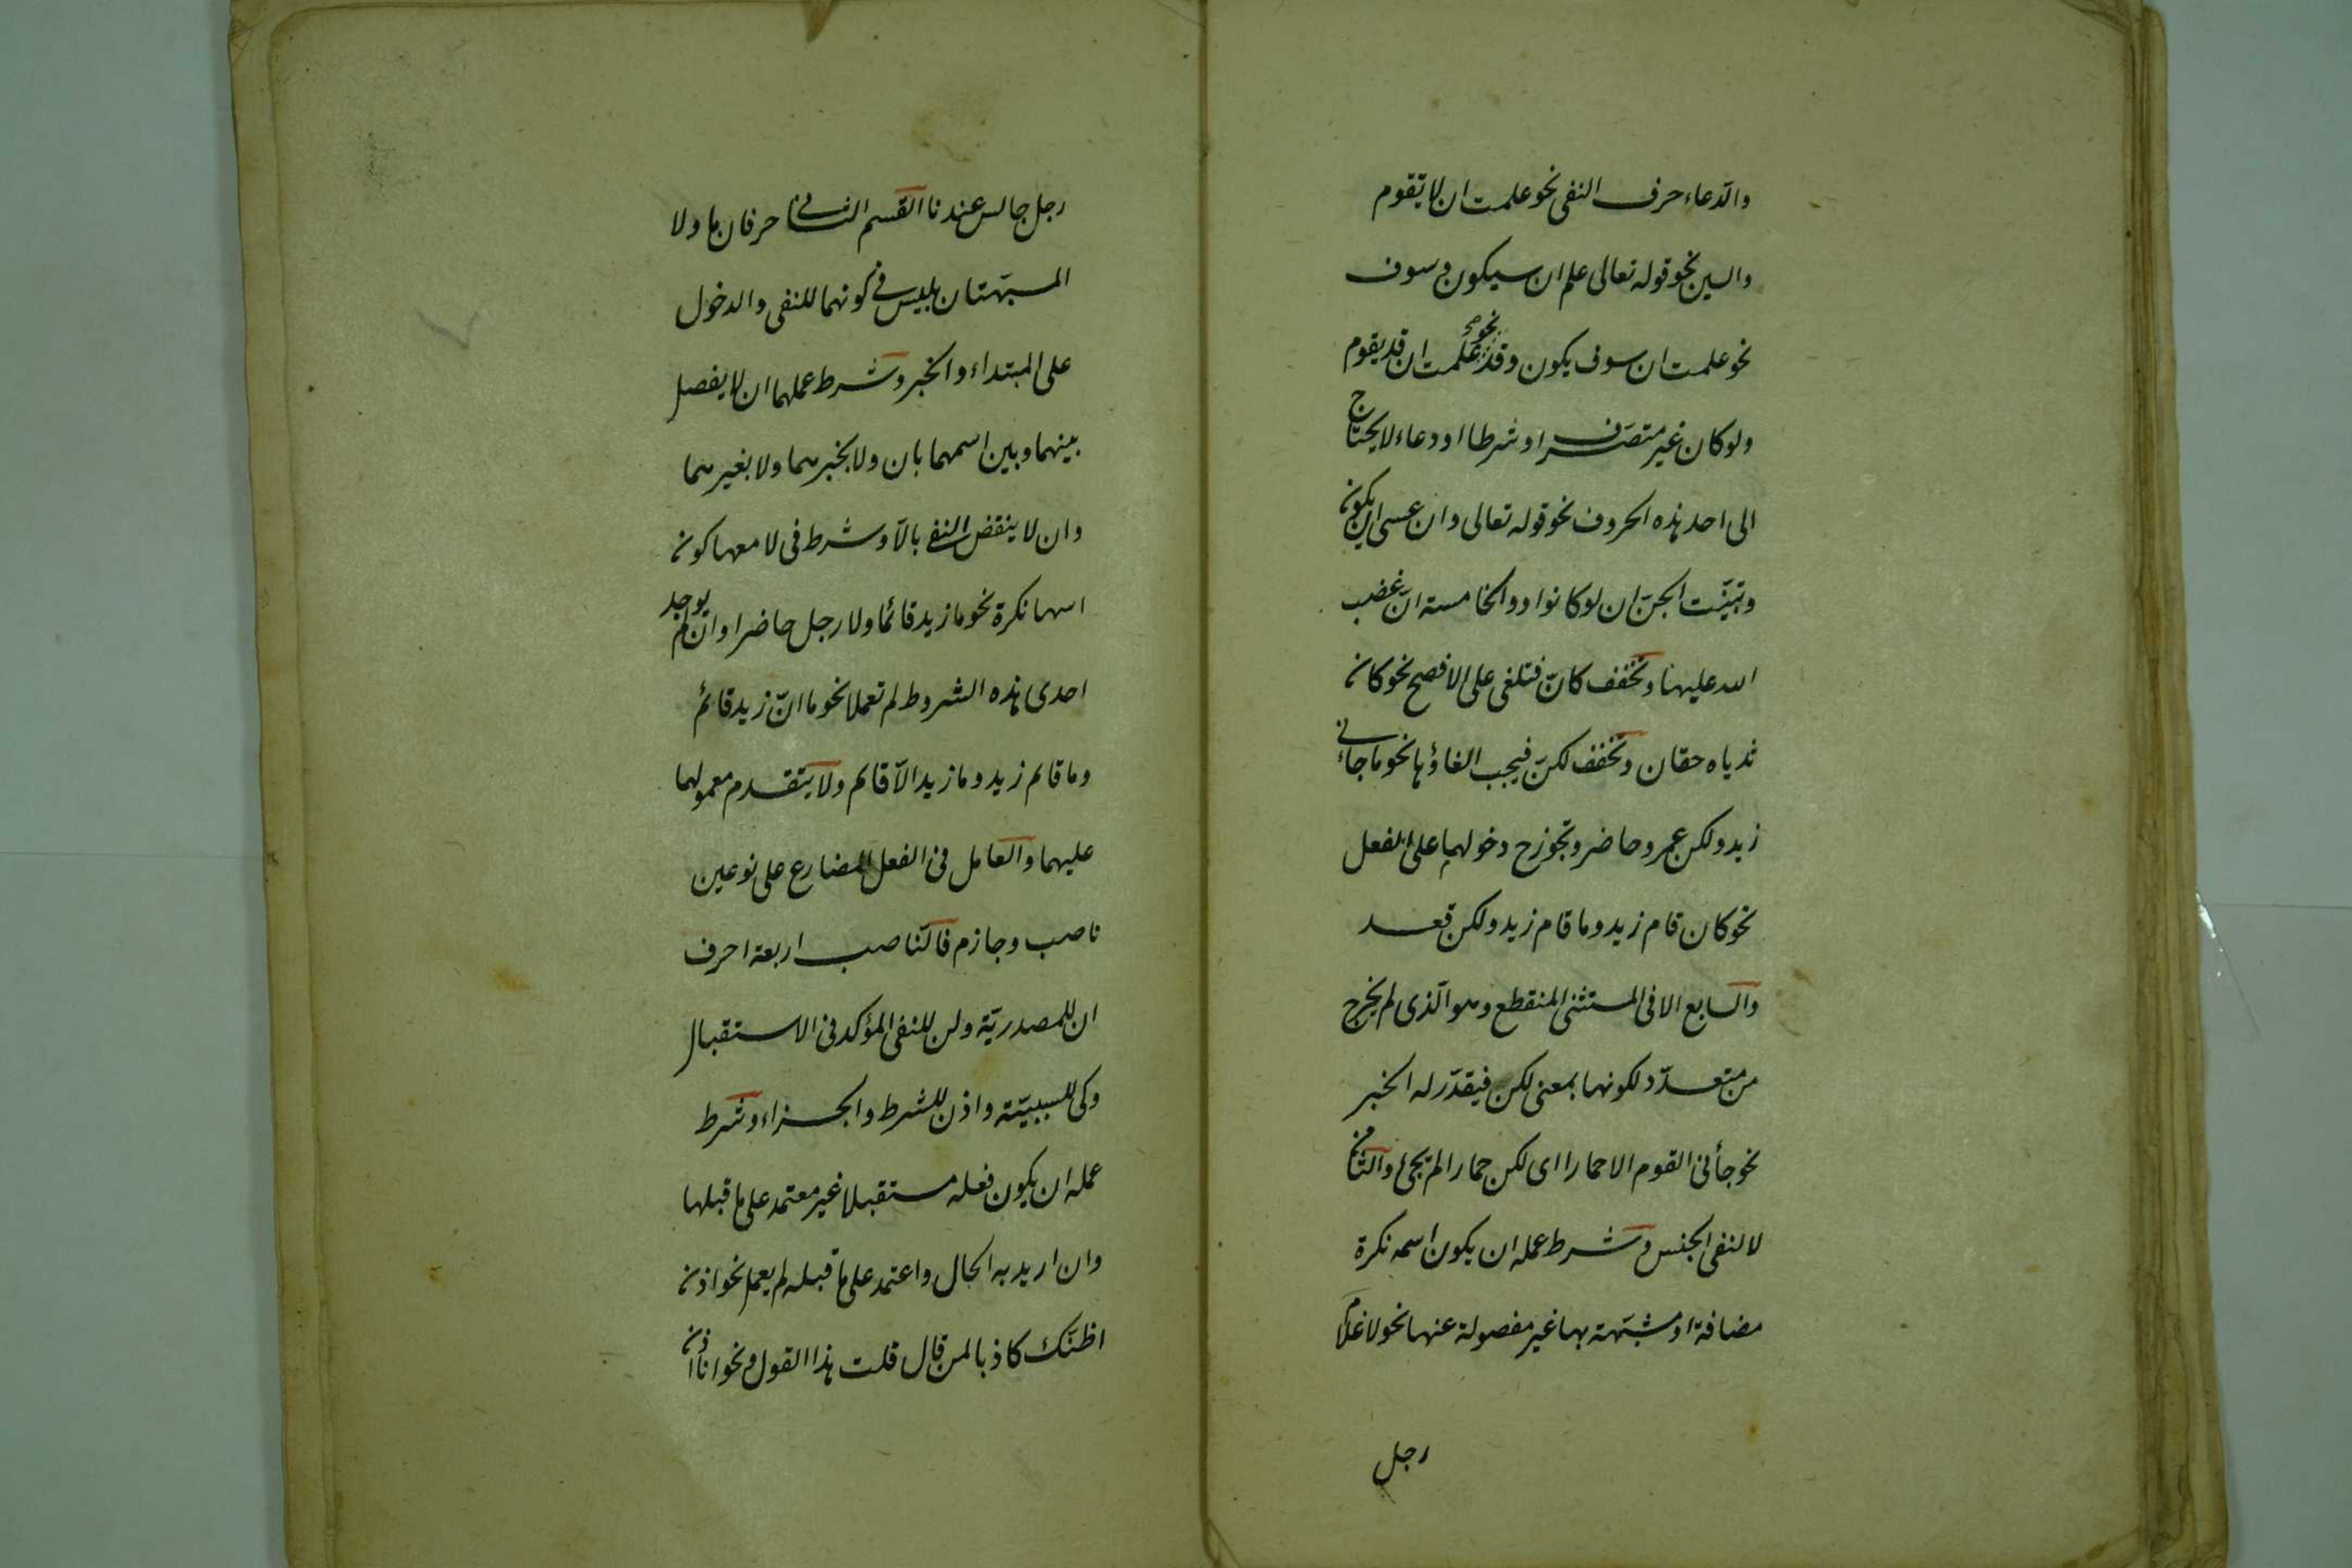 والدعاء حرف النفى نحو علمت ان لا تقوم
والسين نحو قوله تعالى علم ان سيكون وسوف
نحو علمت ان سوف يكون وقد نحو علمت ان قد يقوم
ولو كان غير متصرف او شرطا او دعاء لا يحتاج
الى احد هذه الحروف نحو قوله تعالى وان عسى ان يكون
وتبيّنت الجنّ ان لو كانوا والخامسة انّ غضب
الله عليها وتخفف كانّ فتلغى على الافصح نحو كان
ثدياه حقان وتخفف لكنّ فيجب الغاؤها نحو ما جائنى
زيد ولكن عمرو حاضر وتجوز ح دخولهما على الفعل
نحو كان قام زيد وما قام زيد ولكن قعد
والسابع الا فى المستثنى المنقطع وهو الّذى لم يخرج
من متعدّد لكونها بمعنى لكن فيقدّر له الخبر
نحو جأنى القوم الا حمارا اى لكن حمارا لم يجئ والثامن
لا لنفى الجنس وشرط عمله ان يكون اسمه نكرة
مضافة او مشبّهة بها غير مفصولة عنها نحو لا غلام
رجل
رجل جالس عندنا القسم الثانى حرفان ما ولا
المسبّهتان بليس فى كونهما للنفى والدخول
على المبتداء والخبر وشرط عملهما ان لا يفصل
بينهما وبين اسمهما بان ولا بخبرهما ولا بغيرهما
وان لا ينقض النفى بالّا وشرط فى لا معها كون
اسمها نكرة نحو ما زيد قائما ولا رجل حاضرا وان لم يوجد
احدى هذه الشروط لم تعملا نحو ما انّ زيد قائم
وما قائم زيد وما زيد الّا قائم ولا يتقدم معمولهما
عليهما والعامل فى الفعل المضارع على نوعين
ناصب وجازم فالناصب اربعة احرف
ان للمصدريّة ولن للنفى المؤكد فى الاستقبال
وكى للسببيّة واذن للشرط والجزاء وشرط
عمله ان يكون فعله مستقبلا غير معتمد على ما قبلها
وان اريد به الحال واعتمد على ما قبله لم يعمل نحو اذن
اظنّك كاذبا لمن قال قلت هذا القول ونحو انا اذن